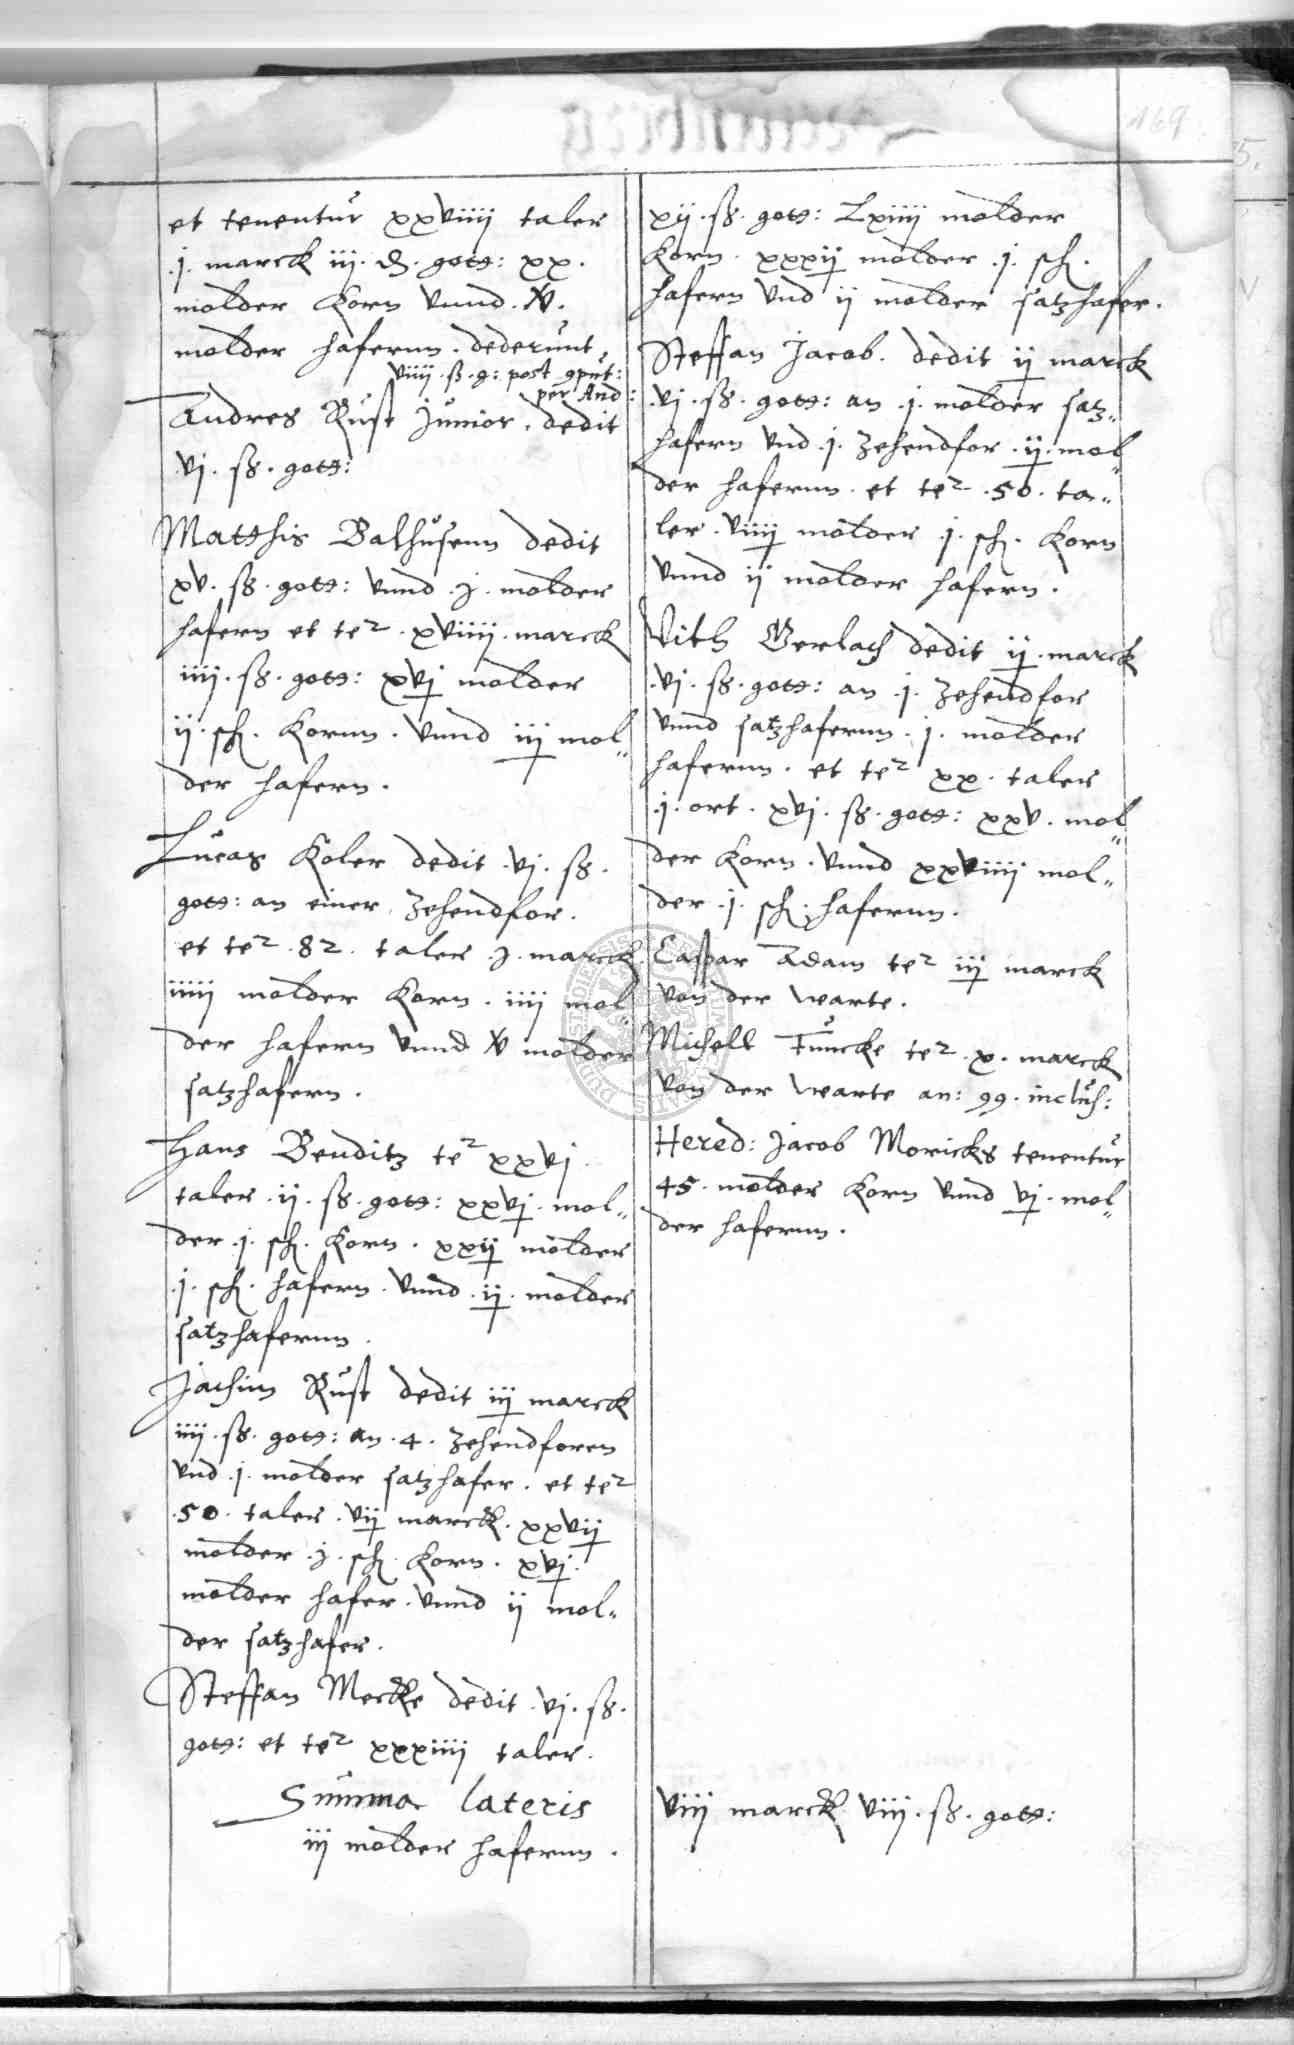 169
et tenentur xxviiii taler
.j. marck iij. ₰. gots: xx.
molder Korn vnnd .X.
molder hafernn. dederunt
viiij. ß. g: post gput:
per And:
Andres Rust Junior. dedit
vj. ß. gots:
Matthis Balhusenn dedit
xv. ß. gots: vnnd .j. molder
hafern et te2. xviiij. marck
iiij. ß. gots: xvj molder
ij. sch. Kornn. vnnd iij mol„
der hafern.
Lucas Koler dedit .vj. ß.
gots: an einer Zehendfor.
et te2. 82. taler .j. marck.
iiiij molder Korn. iiij mol„
der hafern vnnd X molder
satzhafern.
Hans Benditz te2 xxvj
taler .ij. ß. gots: xxvj. mol„
der .j. sch. Korn. xxij molder
.j. sch. hafern. vnnd .ij. molder
satzhafernn.
Jachim Rust dedit iij marck
iiij. ß. gots: an .4. Zehendforen
vnd .j. molder satzhafer. et te2
.50. taler. vij marck. xxvij
molder .j. sch. Korn. xvj.
molder hafer. vnnd ij mol„
der satzhafer.
Steffan Mercke dedit .vj. ß.
gots: et te2 xxxiiij taler.
Summa lateris
iij molder hafernn.
xij. ß. gots: Lxiiij molder
Korn. xxxij molder .j. sch.
hafern vnd ij molder satzhafer.
Steffan Jacob. dedit ij marck
.vj. ß. gots: an .j. molder satz„
hafern vnd .j. Zehendfor .ij. mol„
der hafernn. et te2 .50. ta„
ler. viiij molder .j. sch. Korn
vnnd ij molder hafern.
Vith Gerlach dedit ij. marck
.vj. ß. gots: an .j. Zehendfor
vnnd satzhafernn .j. molder
hafernn. et te2 xx. taler
.j. ort. xvj. ß. gots: xxv. mol„
der Korn. vnnd xxviiij mol„
der .j. sch. hafernn.
Caspar Adam te2 iij marck
von der warte.
Michell Funcke te2 .x. marck
von der warte an: 99. inclus:
Hered: Jacob Moricks tenentur
45. molder Korn vnnd vj. mol„
der hafernn.
viij marck viij. ß. gots: